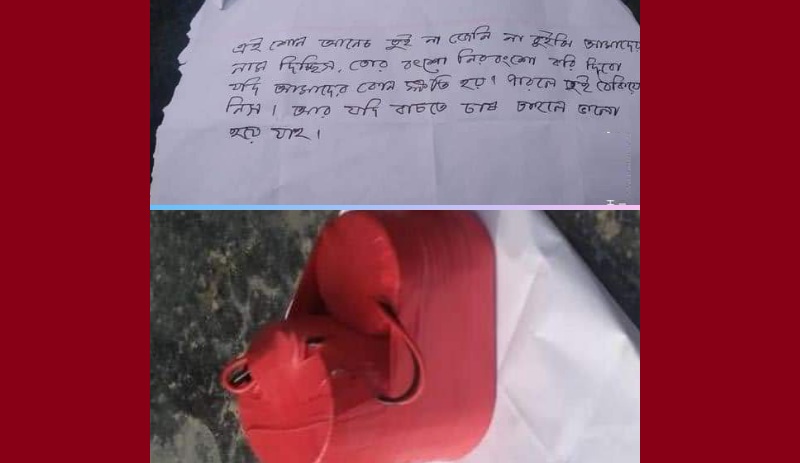 এই শোন আনেচ তুই না জেনি না তুইমি আমাদের
নাম দিচ্ছিস, তোর বংশো নিরবংশো করি দিবো
যদি আমাদের কোন ক্ষতি হয়। পারলে তুই ঠেকিয়ে
নিস। আর যদি বাচতে চাস তাহলে ভালো
হয়ে যাহ।